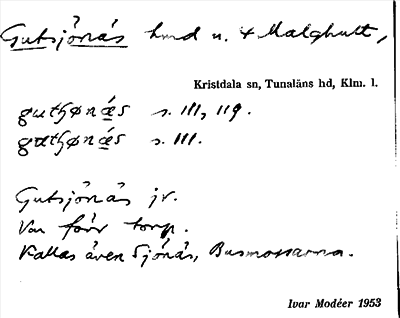 Gutsjönås hmd u. + Malghult,
Kristdala sn, Tunaläns hd, Klm. l.
s. 111, 119.
s. 111.
Gutsjönås jr.
Var förr torp.
Kallas även Sjönås, Busmossarna.
Ivar Modéer 1953